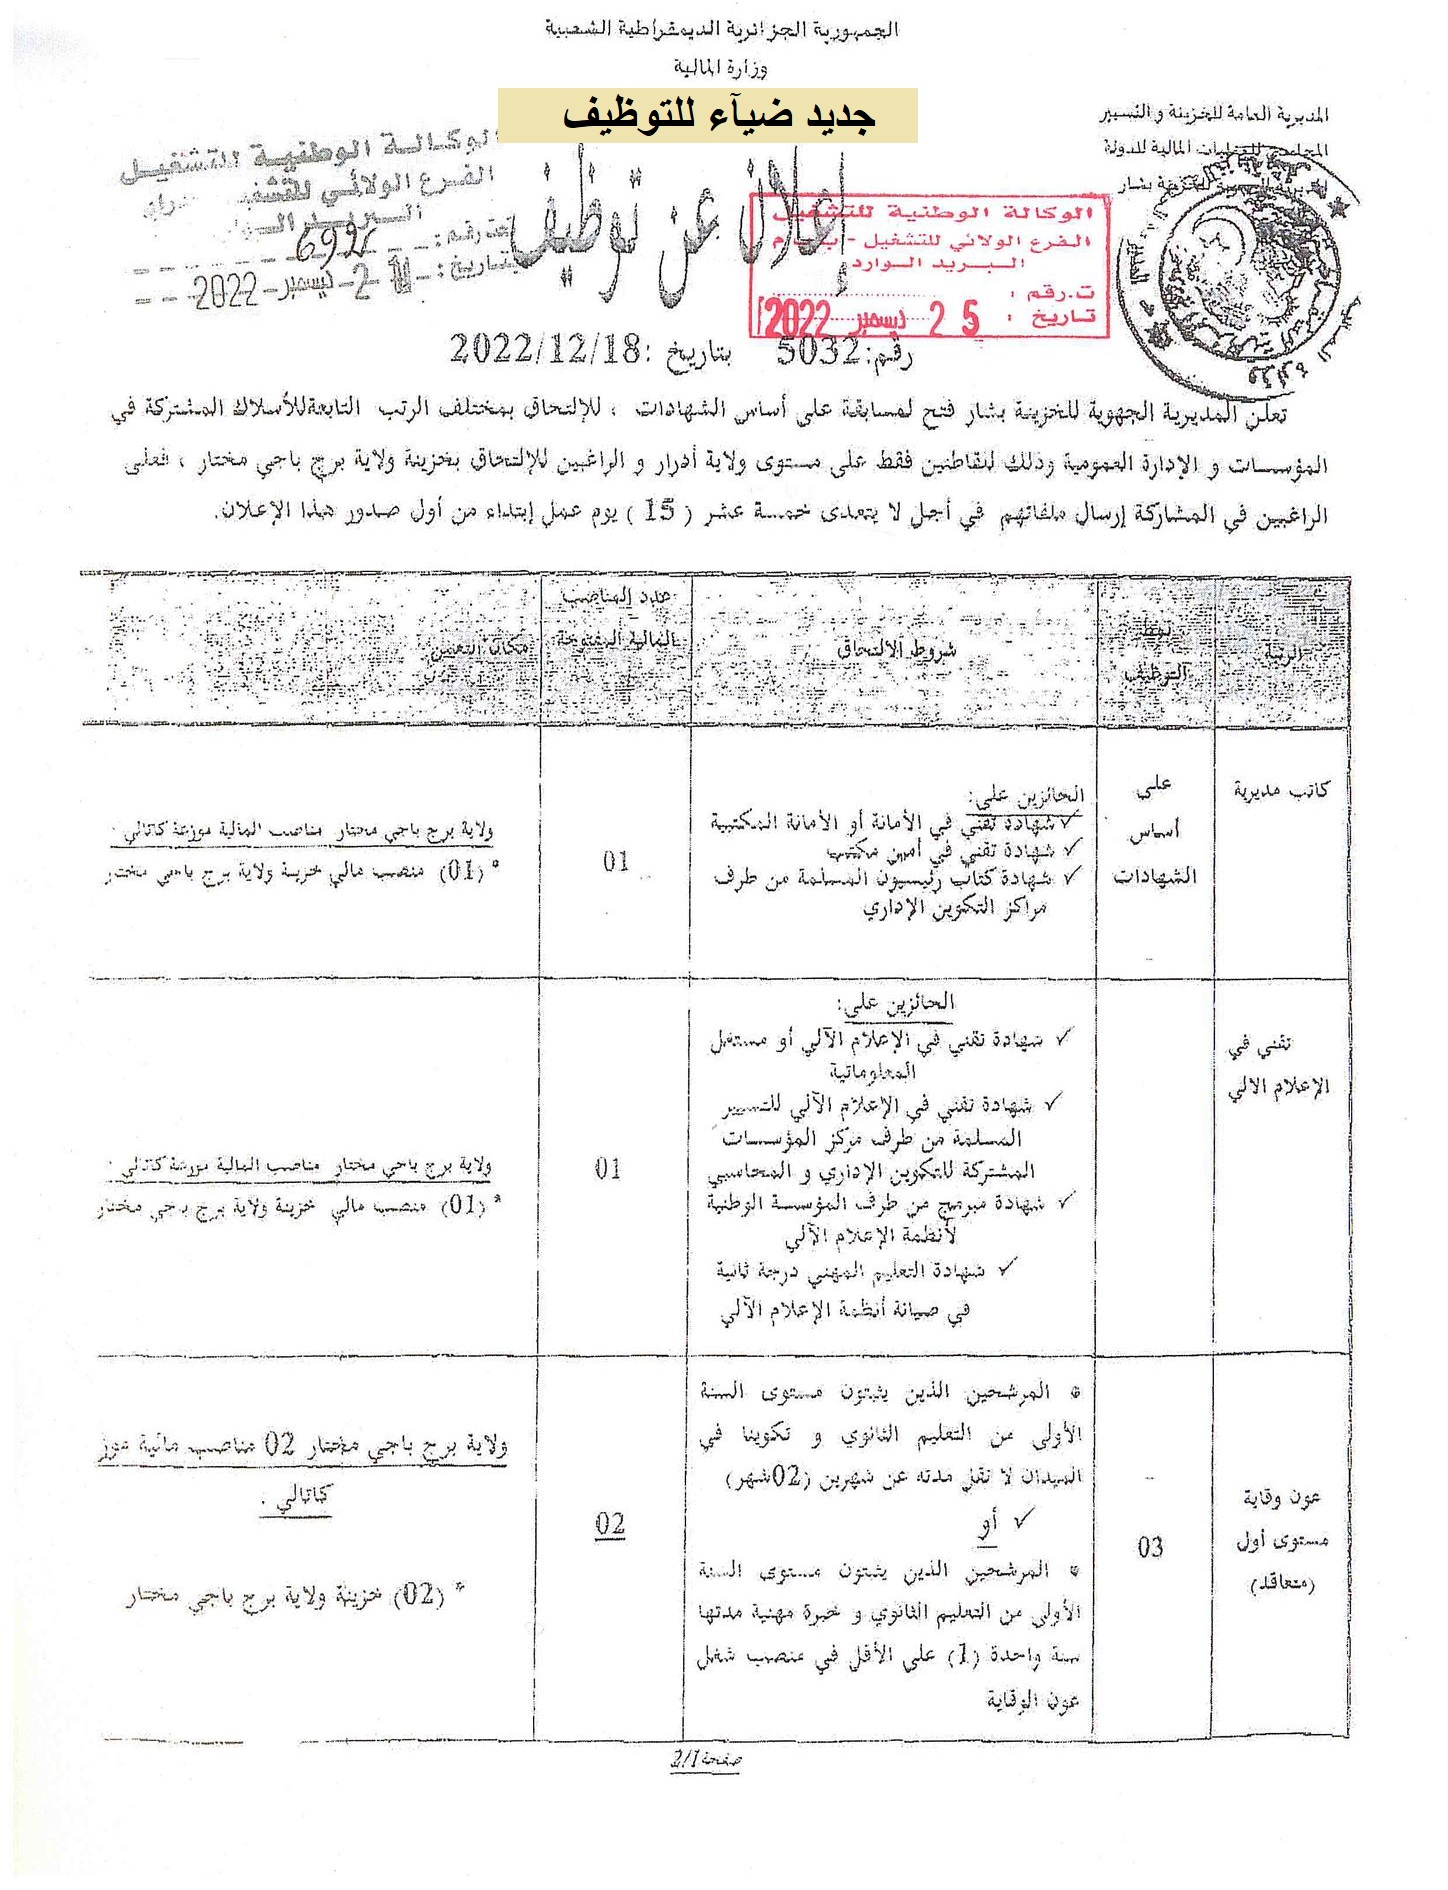 الجمهورية الجزائرية الديمقراطية الشعبية
وزارة المالية
جديد ضيآء للتوظيف
المديرية العامة للخزينة و التسيير
للعمليات المالية للدولة
للخزينة بشار
الوكالة الوطنية للتشغيل
الفرع الولائي للتشغيل
البريد
رقم: 6926
بتاريخ: 2 ديسمبر 2022
إعلان عن توظيف
الوكالة الوطنية للتشغيل
الفرع الولائي للتشغيل - ب.ب.م
البريد الوارد
ت.رقم :
تاريخ : 25 ديسمبر 2022
رقم:5032 بتاريخ :2022/12/18
تعلن المديرية الجهوية للخزينة بشار فتح لمسابقة على أساس الشهادات ، للإلتحاق بمختلف الرتب التابعة للأسلاك المشتركة في
المؤسسات و الإدارة العمومية وذلك للقاطنين فقط على مستوى ولاية أدرار و الراغبين للإلتحاق بخزينة ولاية برج باجي مختار ، فعلى
الراغبين في المشاركة إرسال ملفاتهم في أجل لا يتعدى خمسة عشر ( 15 ) يوم عمل إبتداء من أول صدور هذا الإعلان.
الرتبة
نمط
التوظيف
شروط الالتحاق
عدد المناصب
المالية المفتوحة
مكان التعيين
كاتب مديرية
على
أساس
الشهادات
الحائزين على:
✓ شهادة تقني في الأمانة أو الأمانة المكتبية
✓ شهادة تقني في أمين مكتب
✓ شهادة كتاب رئيسيون المسلمة من طرف
مراكز التكوين الإداري
01
ولاية برج باجي مختار مناصب المالية موزعة كاتالي :
* (01) منصب مالي خزينة ولاية برج باجي مختار
تقني في
الإعلام الالي
الحائزين على:
✓ شهادة تقني في الإعلام الآلي أو مستغل
المعلوماتية
✓ شهادة تقني في الإعلام الآلي للتسيير
المسلمة من طرف مركز المؤسسات
المشتركة للتكوين الإداري و المحاسبي
✓ شهادة مبرمج من طرف المؤسسة الوطنية
لأنظمة الإعلام الآلي
✓ شهادة التعليم المهني درجة ثانية
في صيانة أنظمة الإعلام الآلي
01
ولاية برج باجي مختار مناصب المالية موزعة كاتالي :
* (01) منصب مالي خزينة ولاية برج باجي مختار
عون وقاية
مستوى أول
(متعاقد)
03
* المرشحين الذين يثبتون مستوى السنة
الأولى من التعليم الثانوي و تكوينا في
الميدان لا تقل مدته عن شهرين (02شهر)
✓ أو
* المرشحين الذين يثبتون مستوى السنة
الأولى من التعليم الثانوي و خبرة مهنية مدتها
سنة واحدة (1) على الأقل في منصب شغل
عون الوقاية
02
ولاية برج باجي مختار 02 مناصب مالية موز
كاتالي :
* (02) خزينة ولاية برج باجي مختار
صفحة 2/1